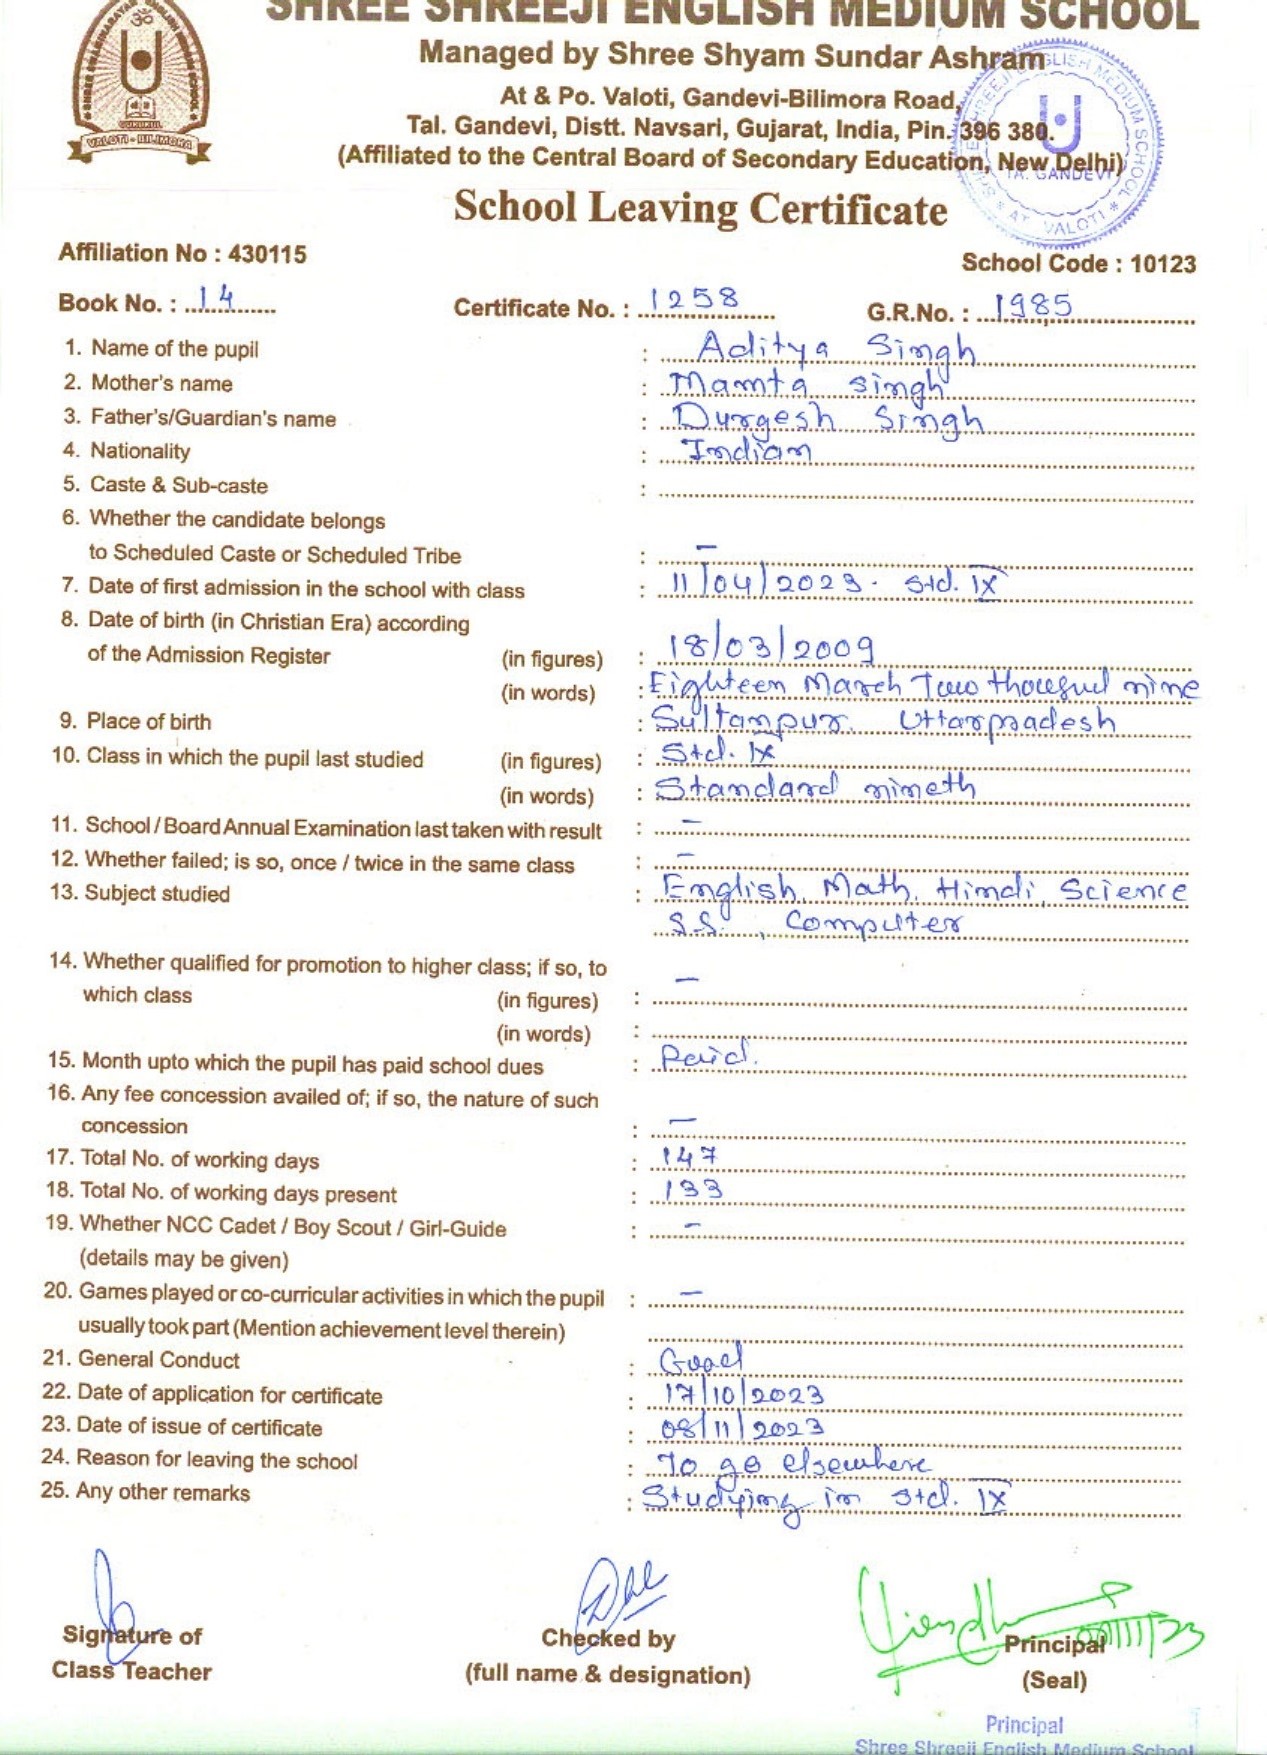 SHREE SHREEJI ENGLISH MEDIUM SCHOOL
Managed by Shree Shyam Sundar Ashram
At & Po. Valoti, Gandevi-Bilimora Road,
Tal. Gandevi, Distt. Navsari, Gujarat, India, Pin. 396 380.
(Affiliated to the Central Board of Secondary Education, New Delhi)
VALOTI - BILIMORA
TA. GANDEVI
AT. VALOTI
School Leaving Certificate
Affiliation No : 430115
School Code : 10123
Book No. : 14 Certificate No. : 1258 G.R.No. : 1985
1. Name of the pupil : Aditya Singh
2. Mother's name : Mamta Singh
3. Father's/Guardian's name : Durgesh Singh
4. Nationality : Indian
5. Caste & Sub-caste :
6. Whether the candidate belongs
to Scheduled Caste or Scheduled Tribe : –
7. Date of first admission in the school with class : 11/04/2023. Std. IX
8. Date of birth (in Christian Era) according
of the Admission Register (in figures) : 18/03/2009
(in words) : Eighteen March Two thousand nine
9. Place of birth : Sultanpur. Uttarpradesh
10. Class in which the pupil last studied (in figures) : Std. IX
(in words) : Standard nineth
11. School / Board Annual Examination last taken with result : –
12. Whether failed; is so, once / twice in the same class : –
13. Subject studied : English, Math, Hindi, Science
S.S. , Computer
14. Whether qualified for promotion to higher class; if so, to –
which class (in figures) :
(in words) :
15. Month upto which the pupil has paid school dues : Paid.
16. Any fee concession availed of; if so, the nature of such
concession : –
17. Total No. of working days : 147
18. Total No. of working days present : 133
19. Whether NCC Cadet / Boy Scout / Girl-Guide : –
(details may be given)
20. Games played or co-curricular activities in which the pupil : –
usually took part (Mention achievement level therein)
21. General Conduct : Good
22. Date of application for certificate : 17/10/2023
23. Date of issue of certificate : 08/11/2023
24. Reason for leaving the school : To go elsewhere
25. Any other remarks : Studying in std. IX
Signature of
Class Teacher
Checked by
(full name & designation)
08/11/23
Principal
(Seal)
Principal
Shree Shreeji English Medium School